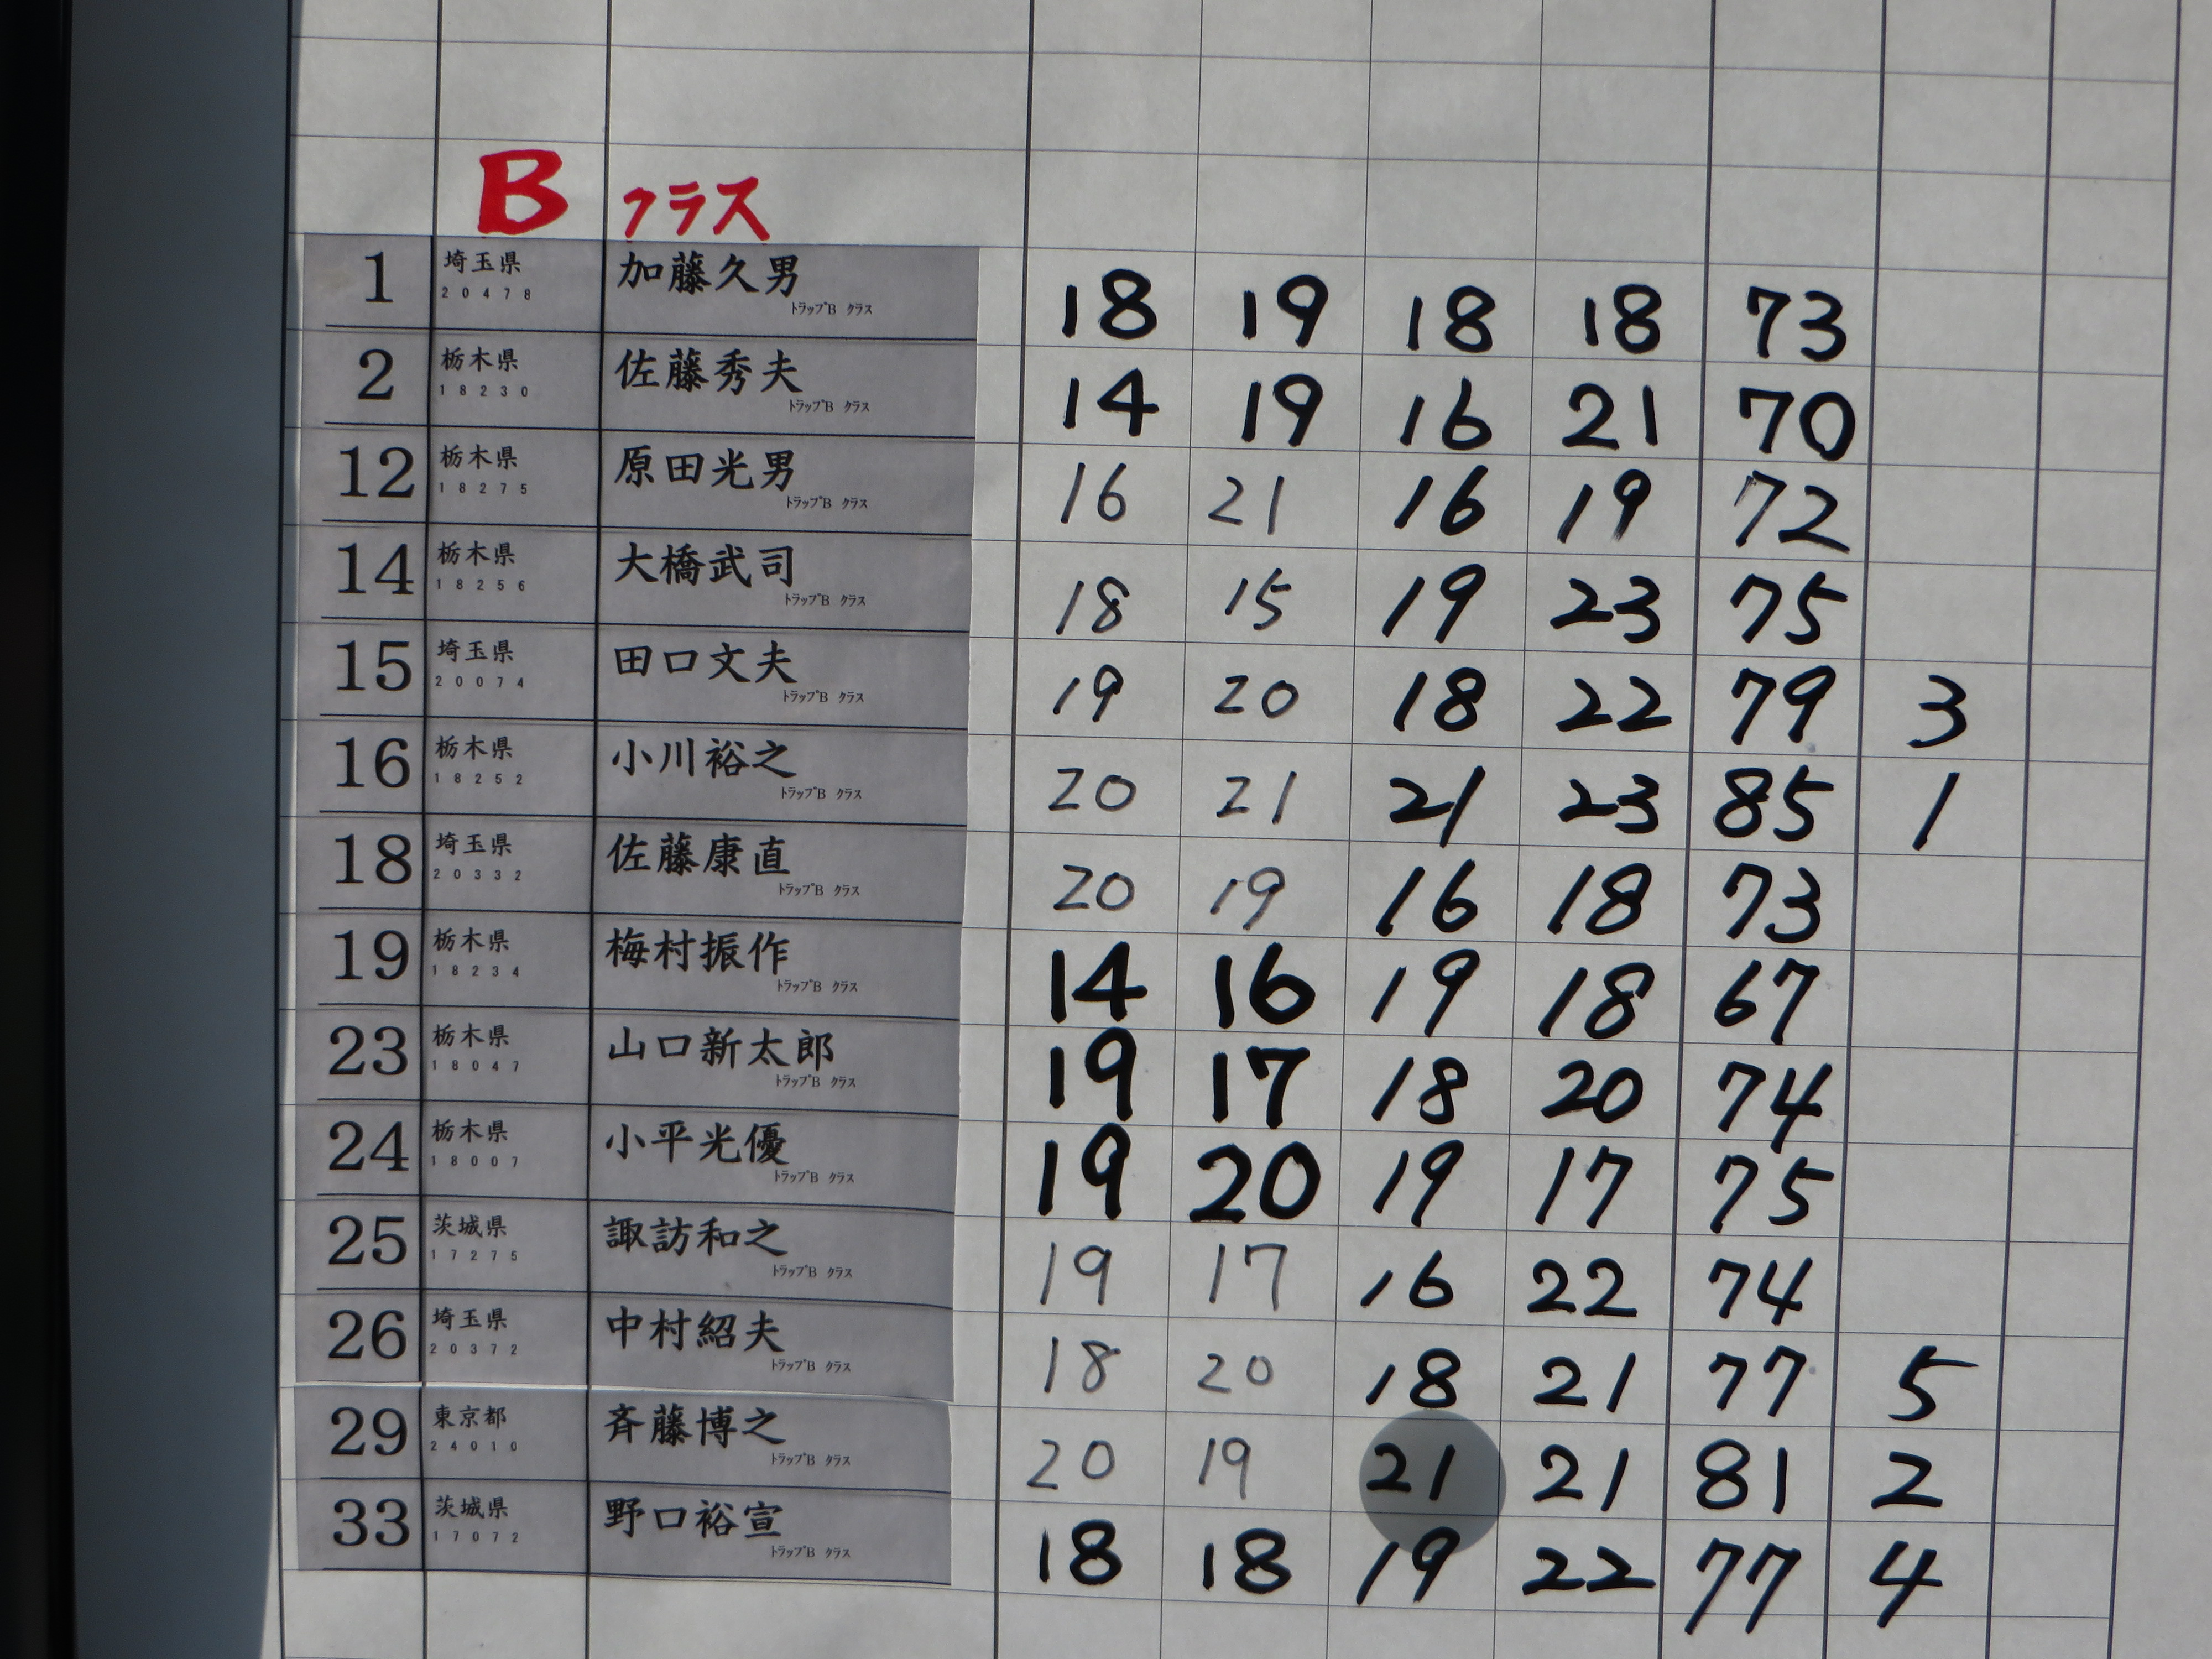 B クラス
1 埼玉県 加藤久男 18 19 18 18 73
20478 トラップB クラス
2 栃木県 佐藤秀夫 14 19 16 21 70
18230 トラップB クラス
12 栃木県 原田光男 16 21 16 19 72
18275 トラップB クラス
14 栃木県 大橋武司 18 15 19 23 75
18256 トラップB クラス
15 埼玉県 田口文夫 19 20 18 22 79 3
20074 トラップB クラス
16 栃木県 小川裕之 20 21 21 23 85 1
18252 トラップB クラス
18 埼玉県 佐藤康直 20 19 16 18 73
20332 トラップB クラス
19 栃木県 梅村振作 14 16 19 18 67
18234 トラップB クラス
23 栃木県 山口新太郎 19 17 18 20 74
18047 トラップB クラス
24 栃木県 小平光優 19 20 19 17 75
18007 トラップB クラス
25 茨城県 諏訪和之 19 17 16 22 74
17275 トラップB クラス
26 埼玉県 中村紹夫 18 20 18 21 77 5
20372 トラップB クラス
29 東京都 斉藤博之 20 19 21 21 81 2
24010 トラップB クラス
33 茨城県 野口裕宣 18 18 19 22 77 4
17072 トラップB クラス